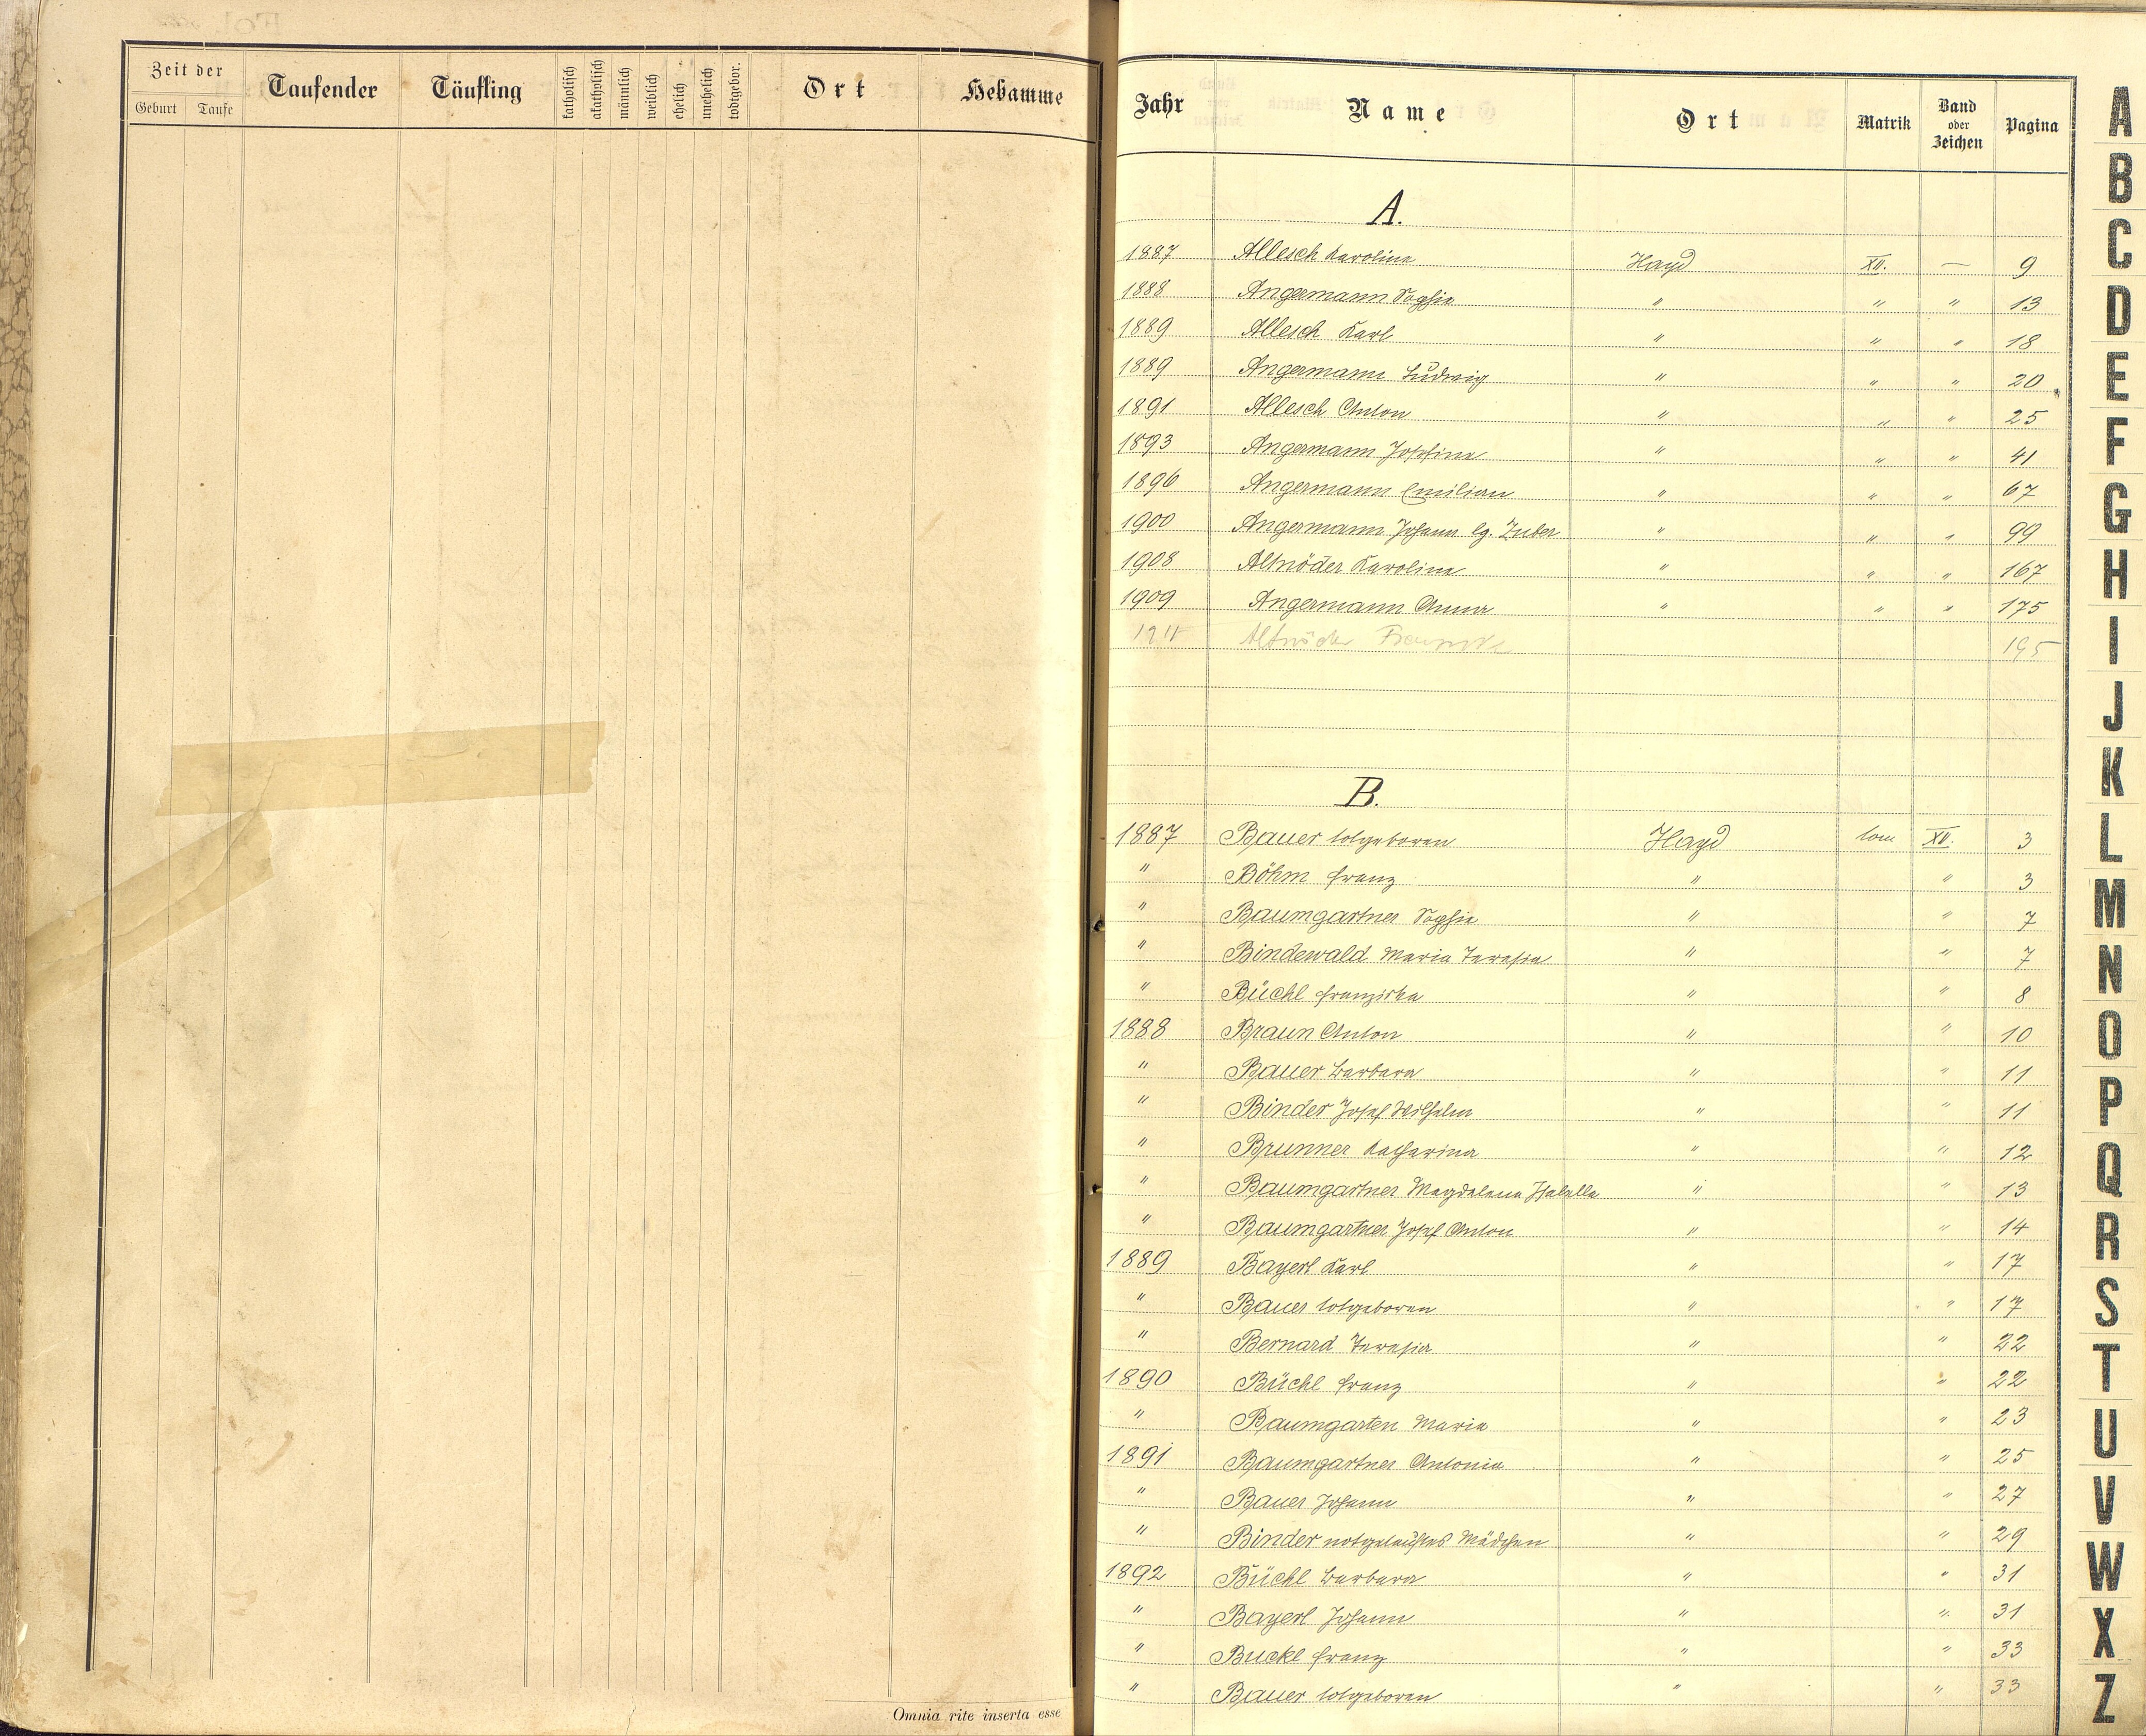 Zeit der Taufender Täufling katholisch akatholisch männlich weiblich ehelich unehelich todtgebor. Ort Hebamme
Geburt Taufe
Omnia rite inserta esse
Jahr Name Ort Matrik Band oder Zeichen Pagina
A.
1887 Allesch Karolina Hayd XII. — 9
1888 Angermann Sophia " " " 13
1889 Allesch Karl " " " 18
1889 Angermann Ludwig " " " 20
1891 Allesch Anton " " " 25
1893 Angermann Josefina " " " 41
1896 Angermann Emilian " " " 67
1900 Angermann Johann lg. Zuber " " " 99
1908 Altnöder Karolina " " " 167
1909 Angermann Anna " " " 175
1911 Altnöder 195
B.
1887 Bauer totgeboren Hayd tom XII. 3
" Böhm Franz " " 3
" Baumgartner Sophia " " 7
" Bindewald Maria Teresia " " 7
" Büchl Franziska " " 8
1888 Braun Anton " " 10
" Bauer Barbara " " 11
" Binder Josef Wilhelm " " 11
" Brunner Katharina " " 12
" Baumgartner Magdalena Isabella " " 13
" Baumgartner Josef Anton " " 14
1889 Bayerl Karl " " 17
" Bauer totgeboren " " 17
" Bernard Teresia " " 22
1890 Büchl Franz " " 22
" Baumgarten Maria " " 23
1891 Baumgartner Antonia " " 25
" Bauer Johann " " 27
" Binder notgetauftes Mädchen " " 29
1892 Büchl Barbara " " 31
" Bayerl Johann " " 31
" Buckl Franz " " 33
" Bauer totgeboren " " 33
A
B
C
D
E
F
G
H
I
J
K
L
M
N
O
P
Q
R
S
T
U
V
W
X
Z